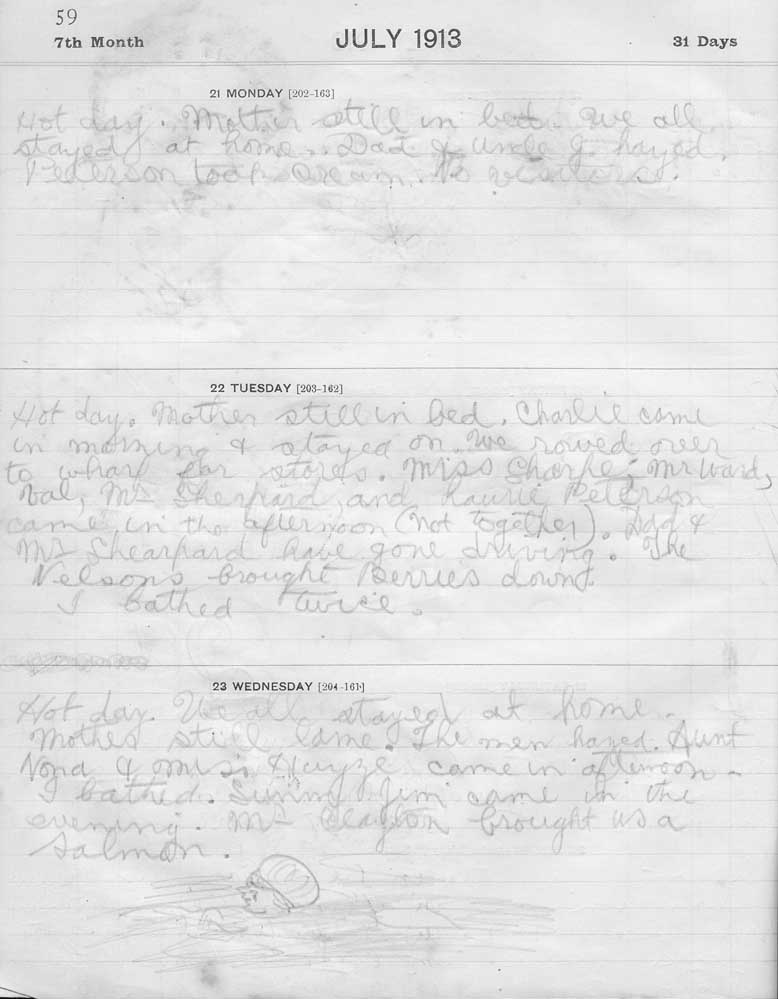 59
7th Month JULY 1913 31 Days
21 MONDAY [202-163]
Hot day. Mother still in bed. We all
stayed at home. Dad & Uncle G. hayed.
Peterson took cream. No visitors.
22 TUESDAY [203-162]
Hot day. Mother still in bed. Charlie came
in morning & stayed on. We rowed over
to wharf for stores. Miss Sharpe, Mr Ward,
Val, Mr Sherpard, and Laurie Peterson
came in the afternoon (not together). Dad &
Mr Shearpard have gone driving. The
Nelsons brought Berries down.
I bathed twice.
23 WEDNESDAY [204-161]
Hot day. We all stayed at home.
Mother still lame. The men hayed. Aunt
Nona & came in afternoon.
I bathed. Sunny Jim came in the
evening. Mr Clayton brought us a
salmon.